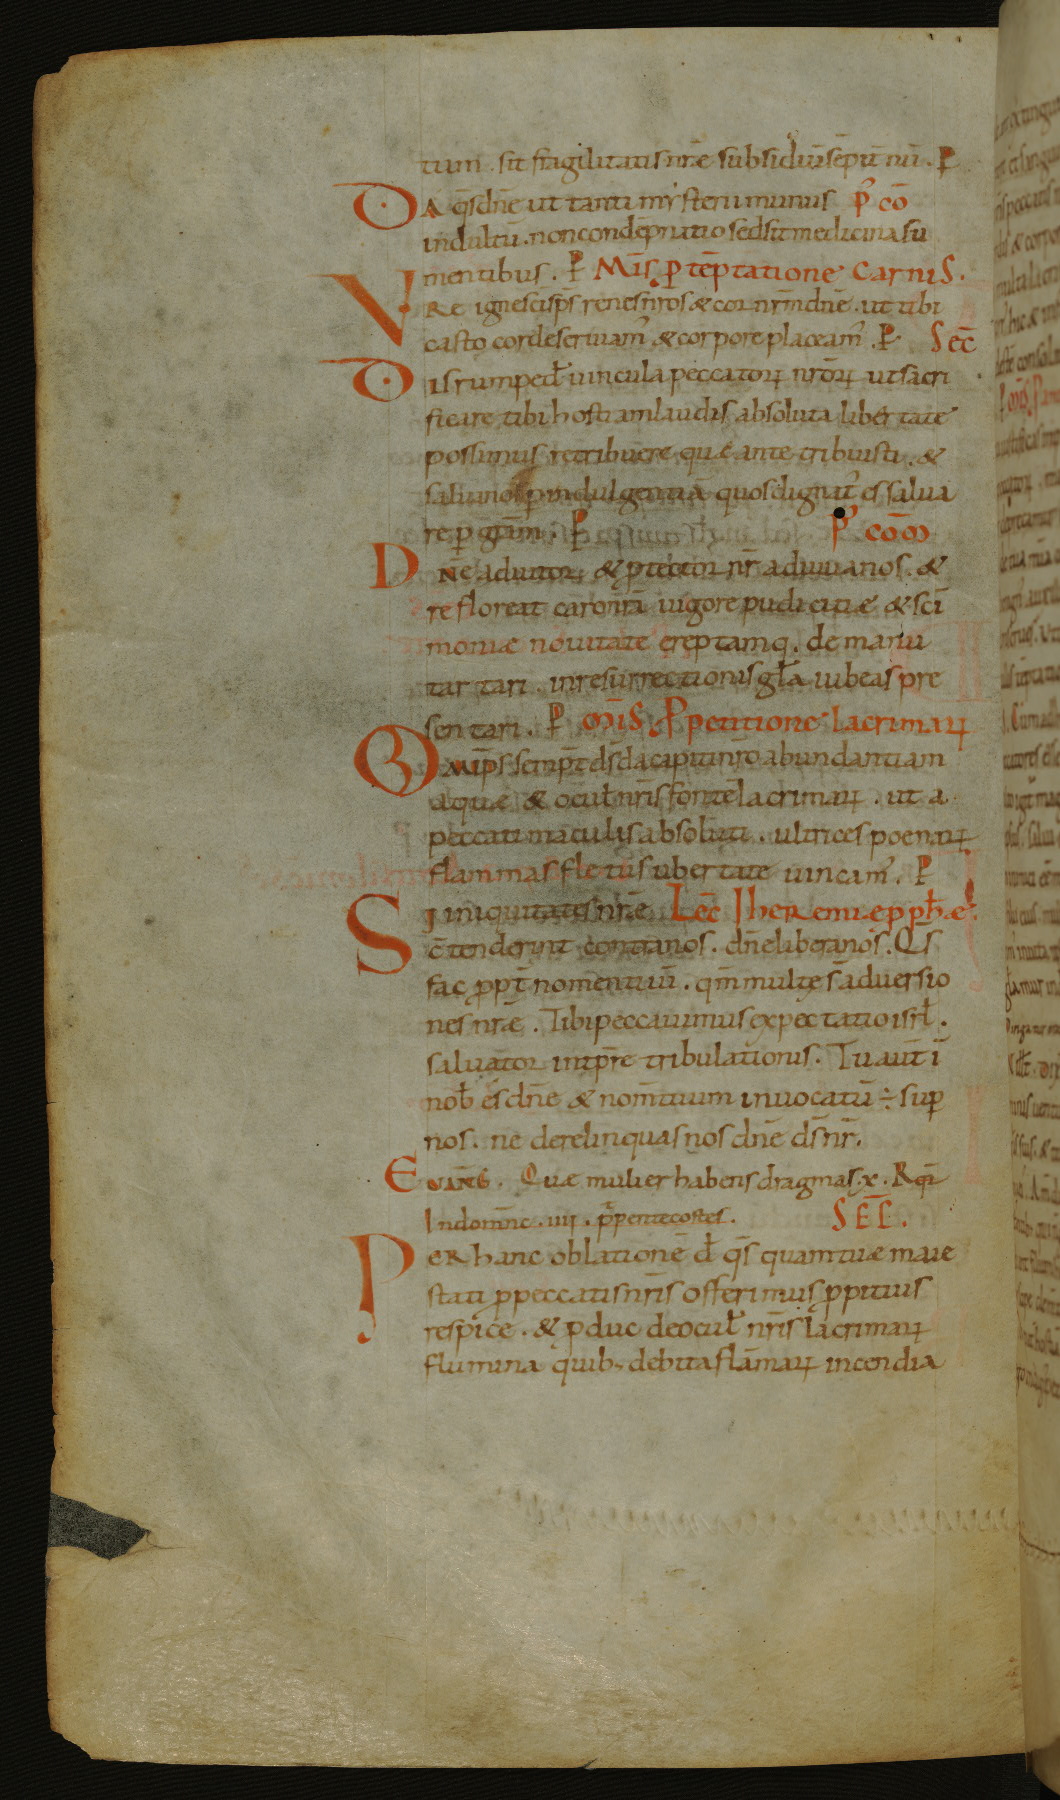 tum. sit fragilitatis nr̄æ subsidiū sēpit̄nū. P
DA q̄s dn̄e ut tanti mysterii munus p̄ cō
indultū. non condēpnatio sed sit medicina su
mentibus. P Mis̄ p tēptatione carnis.
VRE igne sc̄i sps̄ renes nr̄os & cor nr̄m dn̄e. ut tibi
casto corde seruiam̄ & corpore placeam̄. P Sec̄
Disrumpe dꝰ uincula peccatoꝝ nr̄oꝝ ut sacri
ficare tibi hostiam laudis absoluta libertate
possimus retribuere quę ante tribuisti. &
salua nos p indulgentiā quos dignat̄ es salua
re p gr̄am. P p̄ cōm
Dn̄e adiutor & ptector nr̄ adiuua nos. &
refloreat caro nr̄a uigore pudicitiæ & sc̄i
moniæ nouitate ereptamq. de manu
tartari. in resurrectionis gl̄a iubeas pre
sentari. P mis̄. P petitione lacrimaꝝ
Omīps semp̄t ds̄ da capiti nr̄o abundantiam
aquæ & ocul̄ nr̄is fontē lacrimaꝝ. ut a
peccati maculis absoluti. ultrices poenaꝝ
flammas fletus ubertate uincam̄. P
Si iniquitates nr̄æ Lec̄ Iheremiæ pphæ
c̄tenderint contra nos. dn̄e libera nos. Q̄s
fac ppt̄ nomen tuū. qm̄ multę s̄ aduersio
nes nr̄æ. Tibi peccauimus expectatio isrl̄.
saluator in tp̄re tribulationis. Tu aut̄ ī
nob̄ es dn̄e & nom̄ tuum inuocatū ÷ sup
nos. ne derelinquas nos dn̄e ds̄ nr̄.
EUANG. Quæ mulier habens dragmas. x. Rqr̄
In domīnc. iiii. p pentecostes. SEC̄.
PER hanc oblationē dꝰ q̄s quam tuæ maie
stati p peccatis nr̄is offerimus ppitius
respice. & pduc de ocul̄ nr̄is lacrimaꝝ
flumina quib; debita flāmaꝝ incendia